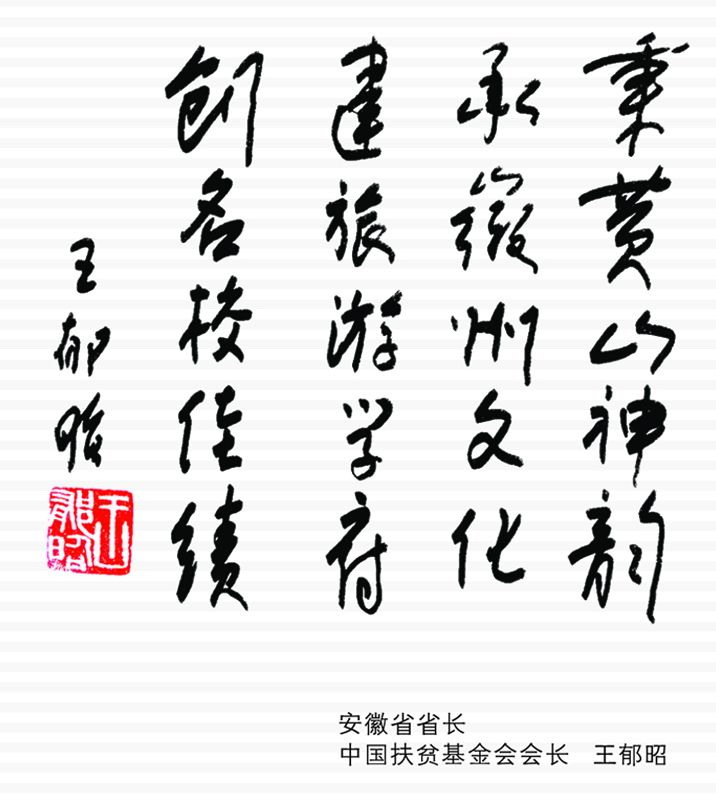 秉黄山神韵
承徽州文化
建旅游学府
创名校佳绩
王郁昭
王郁昭
安徽省省长
中国扶贫基金会会长 王郁昭